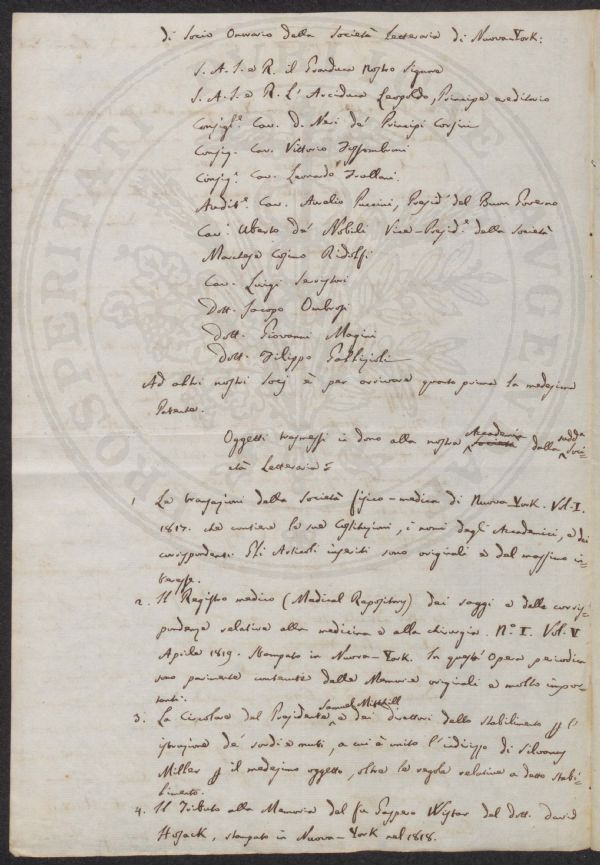 di Socio Onorario della Società Letteraria di Nuova-York:
S. A. I. e R. il Granduca Nostro Signore
S. A. I. e R. L'Arciduca Leopoldo, Principe ereditario
Consigl.e Cav. D. Neri de' Principi Corsini
Consig. Cav. Vittorio Fossombroni
Consig.e Cav. Leonardo Frullani.
Audit.e Cav. Aurelio Puccini, Presid.e del Buon Governo
Cav. Uberto de' Nobili Vice-Presid.e della Società
Marchese Cosimo Ridolfi
Cav. Luigi Serristori
Dott. Jacopo Ombrosi
Dott. Giovanni Magini
Dott. Filippo Gallizioli
Ad altri nostri Socj è per arrivare quanto prima la medesima
Patente.
Oggetti trasmessi in dono alla nostra Accademia Società dalla sudda Soci-
età Letteraria:
1 Le transazioni della Società fisico-medica di Nuova-York. Vol. I.
1817. che contiene le sue Costituzioni, i nomi degli Accademici, e dei
corrispondenti. Gli Articoli inseriti sono originali e del massimo in-
teresse.
2. Il Registro medico (Medical Repository) dei saggi e delle corris-
pondenze relative alla medicina e alla chirurgia. N.o I. Vol. V
Aprile 1819. Stampato in Nuova-York. In quest'Opera periodica
sono parimente contenute delle Memorie originali e molto impor-
tanti.
3. La Circolare del Presidente Samuel Mitchill e dei direttori dello stabilimento per l'
istruzione de' sordi e muti, a cui è unito l'indirizzo di Silvanus
Miller per il medesimo oggetto, oltre le regole relative a detto stabi-
limento.
4. Il Tributo alla Memoria del fu Gaspero Wistar del dott. David
Hosack, stampato in Nuova-York nel 1818.
PROSPERITATI AUGENDAE